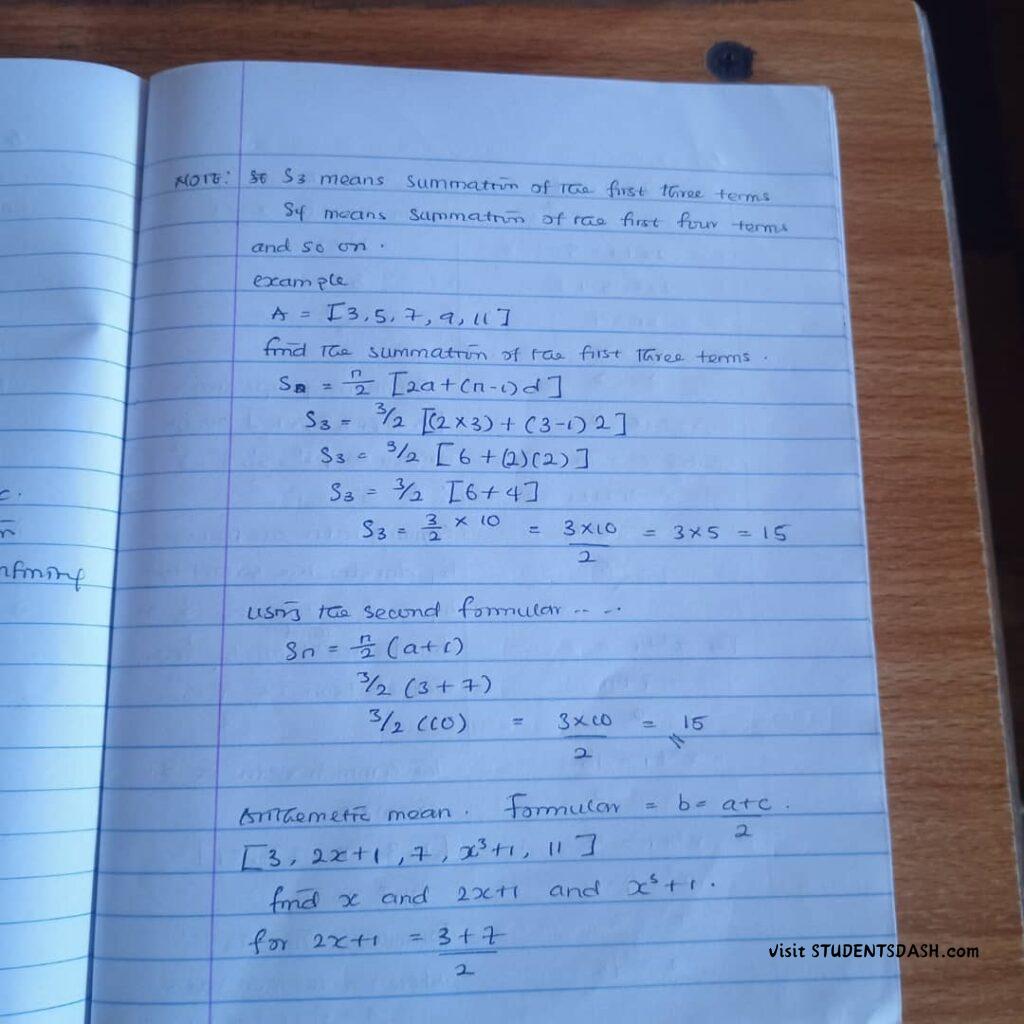 NOTE: S3 means summation of the first three terms
S4 means summation of the first four terms
and so on.
example
A = [3, 5, 7, 9, 11]
find the summation of the first three terms.
Sn = n/2 [2a + (n-1)d]
S3 = 3/2 [(2×3) + (3-1) 2]
S3 = 3/2 [6 + (2)(2)]
S3 = 3/2 [6 + 4]
S3 = 3/2 × 10 = 3×10/2 = 3×5 = 15
c.
using the second formular -- -.
Sn = n/2 (a+l)
3/2 (3 + 7)
3/2 (10) = 3×10/2 = 15
Arithemetic mean. Formular = b = a+c/2.
[3, 2x+1, 7, x³+1, 11]
find x and 2x+1 and x³+1.
for 2x+1 = 3+7/2
visit STUDENTSDASH.com